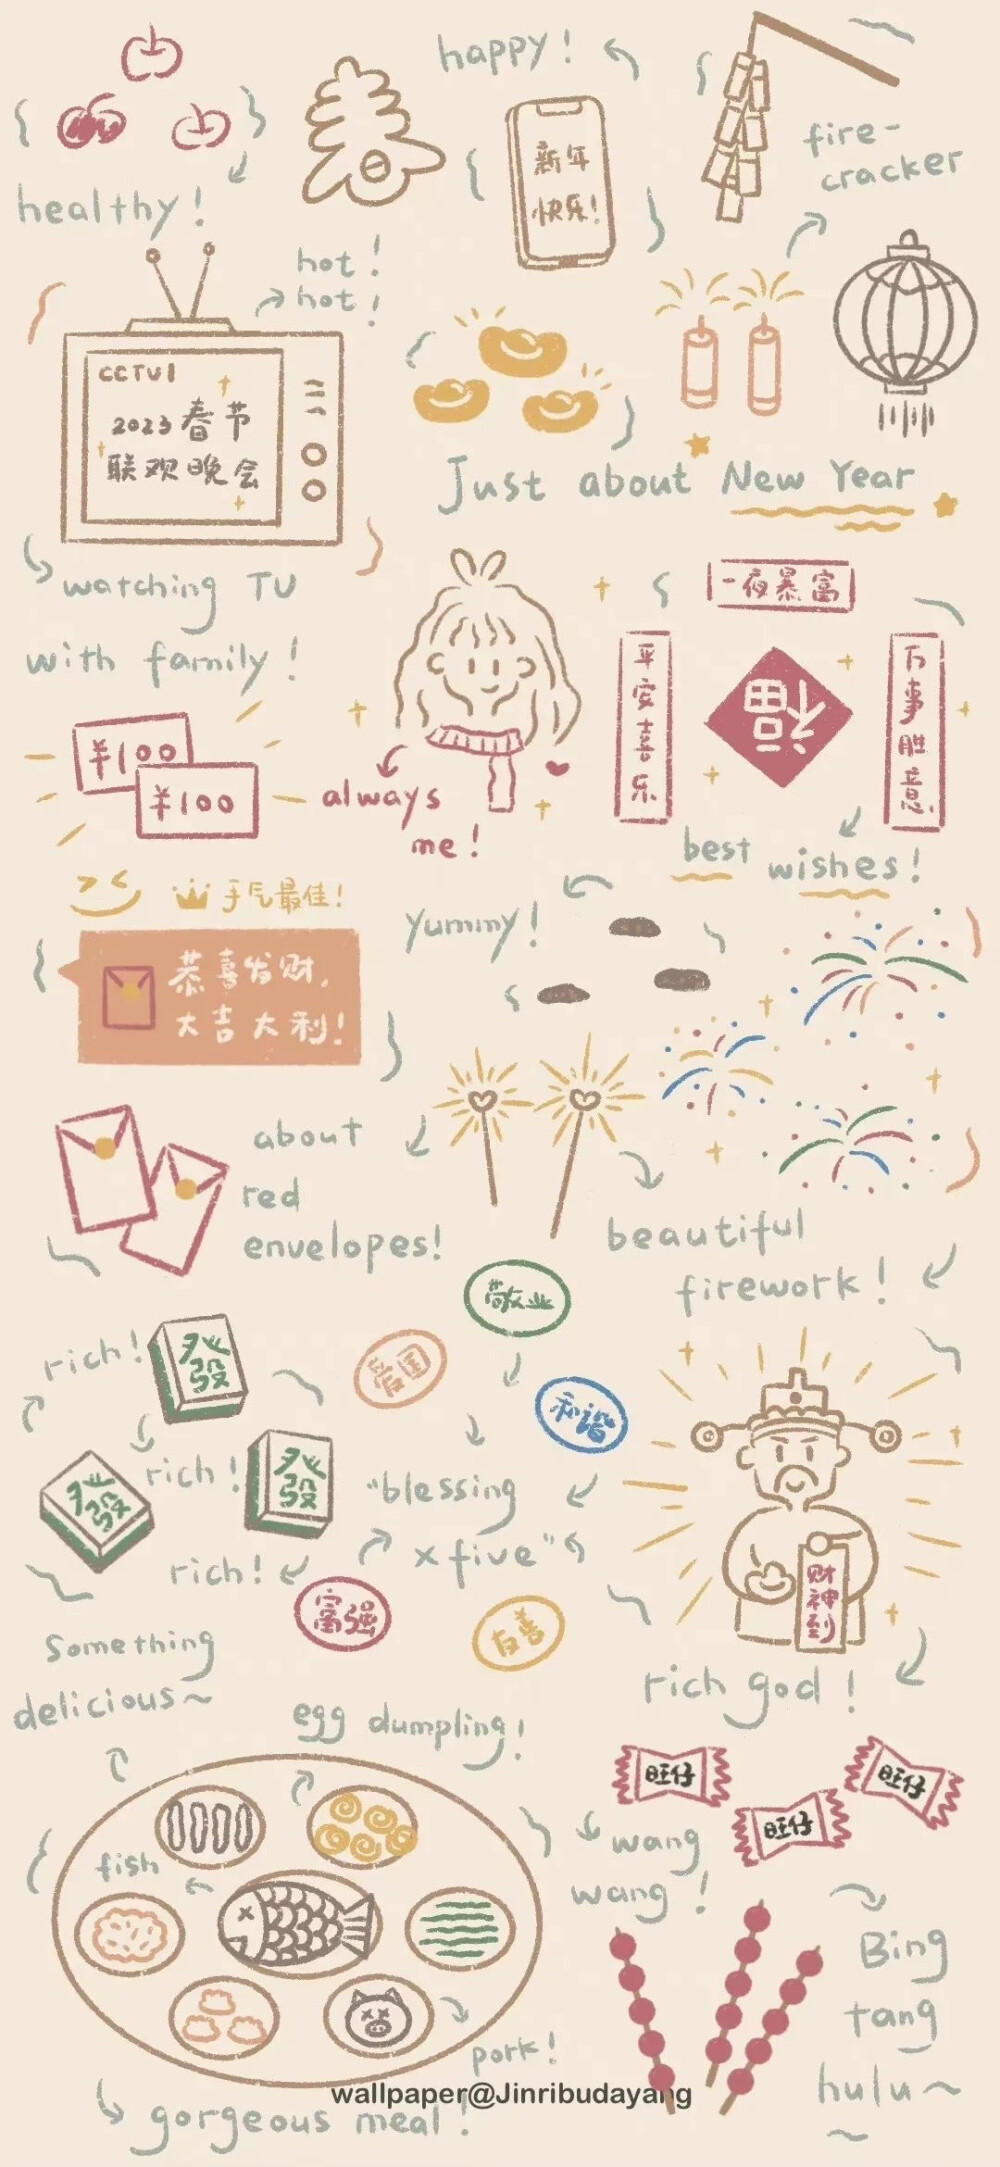 happy!
healthy!
春
新年
快乐!
fire-
cracker
hot!
hot!
CCTV1
2023春节
联欢晚会
Just about New Year
watching TV
with family!
¥100
¥100
always
me!
一夜暴富
平安喜乐
福
万事胜意
best
wishes!
手气最佳!
恭喜发财,
大吉大利!
yummy!
about
red
envelopes!
beautiful
firework!
敬业
爱国
和谐
rich!
發
rich!
發
發
rich!
"blessing
x five"
富强
友善
财神到
rich god!
Something
delicious~
egg dumpling!
fish
pork!
gorgeous meal!
旺仔
旺仔
旺仔
wang
wang!
Bing
tang
hulu~
wallpaper@Jinribudayang